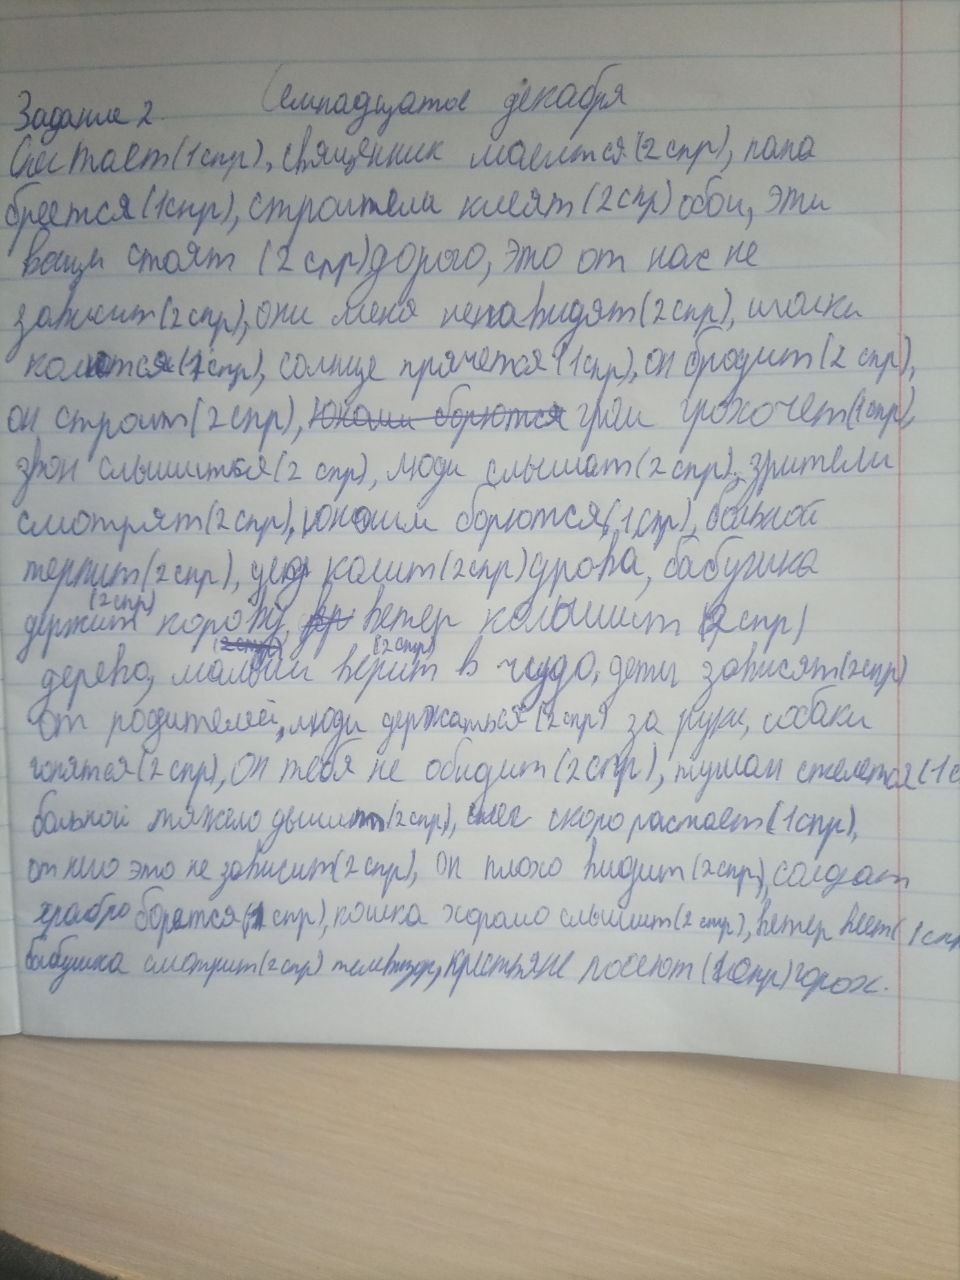 Семнадцатое декабря
Задание 2.
Снег тает (1 спр), священник молится (2 спр), папа
бреется (1 спр), строители клеят (2 спр) обои, эти
вещи стоят (2 спр) дорого, это от нас не
зависит (2 спр), они меня ненавидят (2 спр), иголки
колются (1 спр), солнце прячется (1 спр), он бродит (2 спр),
он строит (2 спр), гром грохочет (1 спр),
звон слышится (2 спр), люди слышат (2 спр), зрители
смотрят (2 спр), юноши борются (1 спр), больной
терпит (2 спр), дед колит (2 спр) дрова, бабушка
держит (2 спр) корову, ветер колышит (2 спр)
дерево, малыш верит (2 спр) в чудо, дети зависят (2 спр)
от родителей, люди держаться (2 спр) за руки, собаки
гонятся (2 спр), Он тебя не обидит (2 спр), туман стелется (1 с
больной тяжело дышит (2 спр), снег скоро растает (1 спр),
от него это не зависит (2 спр), Он плохо видит (2 спр), солдат
храбро борятся (1 спр), кошка хорошо слышит (2 спр), ветер веет (1 спр
бабушка смотрит (2 спр) телевизор, крестьяне посеют (1 спр) горох.